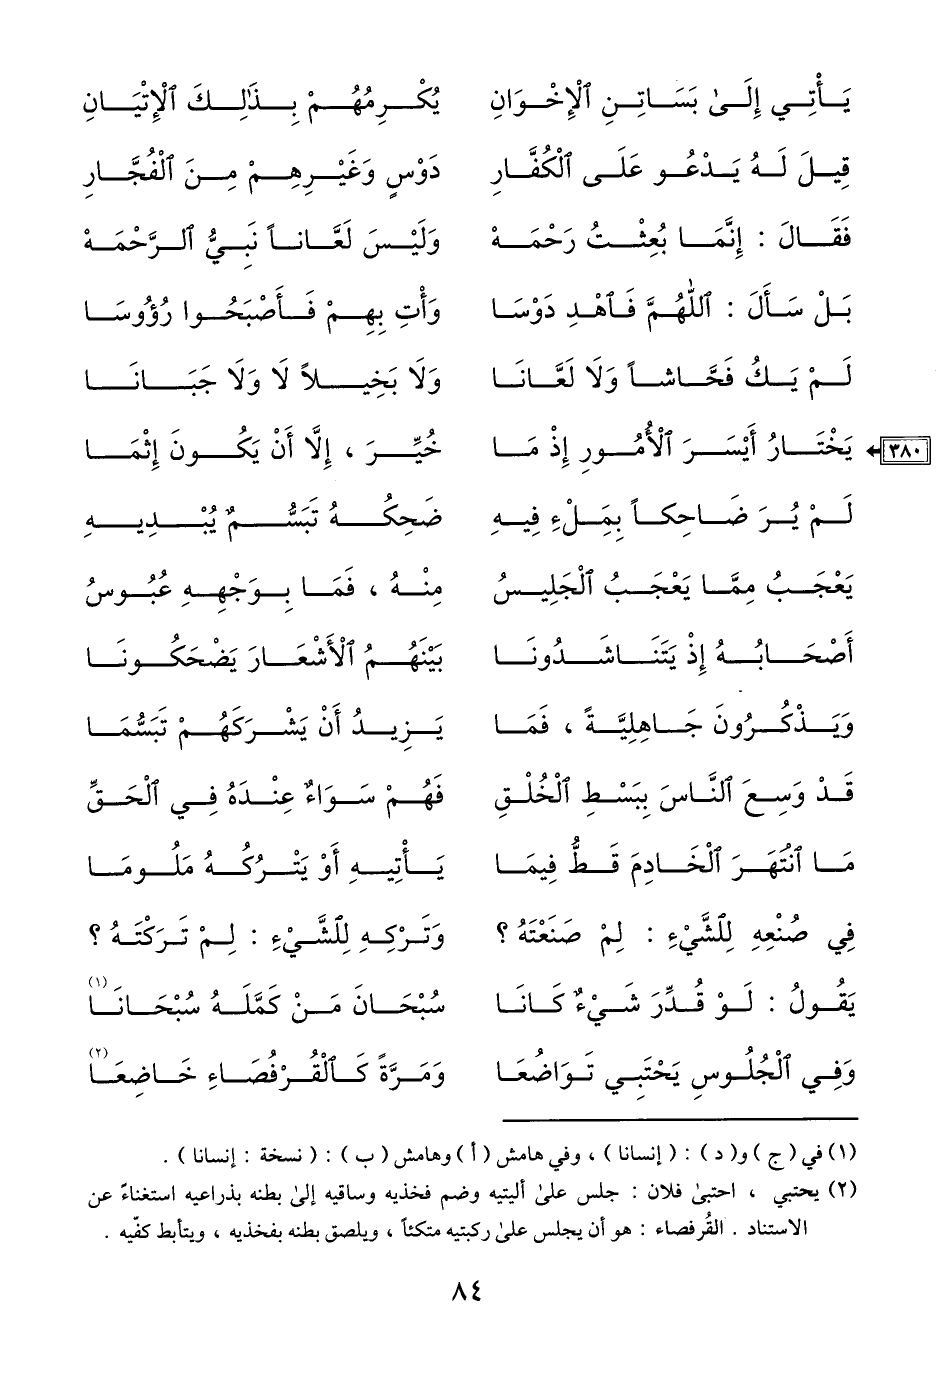 يَأْتِي إِلَىٰ بَسَاتِنِ ٱلْإِخْوَانِ يُكْرِمُهُمْ بِذَٰلِكَ ٱلْإِتْيَانِ
قِيلَ لَهُ يَدْعُو عَلَى ٱلْكُفَّارِ دَوْسٍ وَغَيْرِهِمْ مِنَ ٱلْفُجَّارِ
فَقَالَ : إِنَّمَا بُعِثْتُ رَحْمَهْ وَلَيْسَ لَعَّاناً نَبِيُّ ٱلرَّحْمَهْ
بَلْ سَأَلَ : ٱللَّهُمَّ فَٱهْدِ دَوْسَا وَأْتِ بِهِمْ فَأَصْبَحُوا رُؤُوسَا
لَمْ يَكُ فَحَّاشاً وَلَا لَعَّانَا وَلَا بَخِيلاً لَا وَلَا جَبَانَا
٣٨٠ يَخْتَارُ أَيْسَرَ ٱلْأُمُورِ إِذْ مَا خُيِّرَ ، إِلَّا أَنْ يَكُونَ إِثْمَا
لَمْ يُرَ ضَاحِكاً بِمَلْءِ فِيهِ ضَحِكُهُ تَبَسُّمٌ يُبْدِيهِ
يَعْجَبُ مِمَّا يَعْجَبُ ٱلْجَلِيسُ مِنْهُ ، فَمَا بِوَجْهِهِ عُبُوسُ
أَصْحَابُهُ إِذْ يَتَنَاشَدُونَا بَيْنَهُمُ ٱلْأَشْعَارَ يَضْحَكُونَا
وَيَذْكُرُونَ جَاهِلِيَّةً ، فَمَا يَزِيدُ أَنْ يَشْرَكَهُمْ تَبَسُّمَا
قَدْ وَسِعَ ٱلنَّاسَ بِبَسْطِ ٱلْخُلْقِ فَهُمْ سَوَاءٌ عِنْدَهُ فِي ٱلْحَقِّ
مَا ٱنْتَهَرَ ٱلْخَادِمَ قَطُّ فِيمَا يَأْتِيهِ أَوْ يَتْرُكُهُ مَلُومَا
فِي صُنْعِهِ لِلشَّيْءِ : لِمْ صَنَعْتَهُ ؟ وَتَرْكِهِ لِلشَّيْءِ : لِمْ تَرَكْتَهُ ؟
يَقُولُ : لَوْ قُدِّرَ شَيْءٌ كَانَا سُبْحَانَ مَنْ كَمَّلَهُ سُبْحَانَا (١)
وَفِي ٱلْجُلُوسِ يَحْتَبِي تَوَاضُعَا وَمَرَّةً كَٱلْقُرْفُصَاءِ خَاضِعَا (٢)
(١) في ( ج ) و( د ) : ( إنسانا ) ، وفي هامش ( أ ) وهامش ( ب ) : ( نسخة : إنسانا ) .
(٢) يحتبي ، احتبىٰ فلان : جلس علىٰ أليتيه وضم فخذيه وساقيه إلىٰ بطنه بذراعيه استغناءً عن
الاستناد . القُرفصاء : هو أن يجلس علىٰ ركبتيه متكئاً ، ويلصق بطنه بفخذيه ، ويتأبط كفّيه .
٨٤